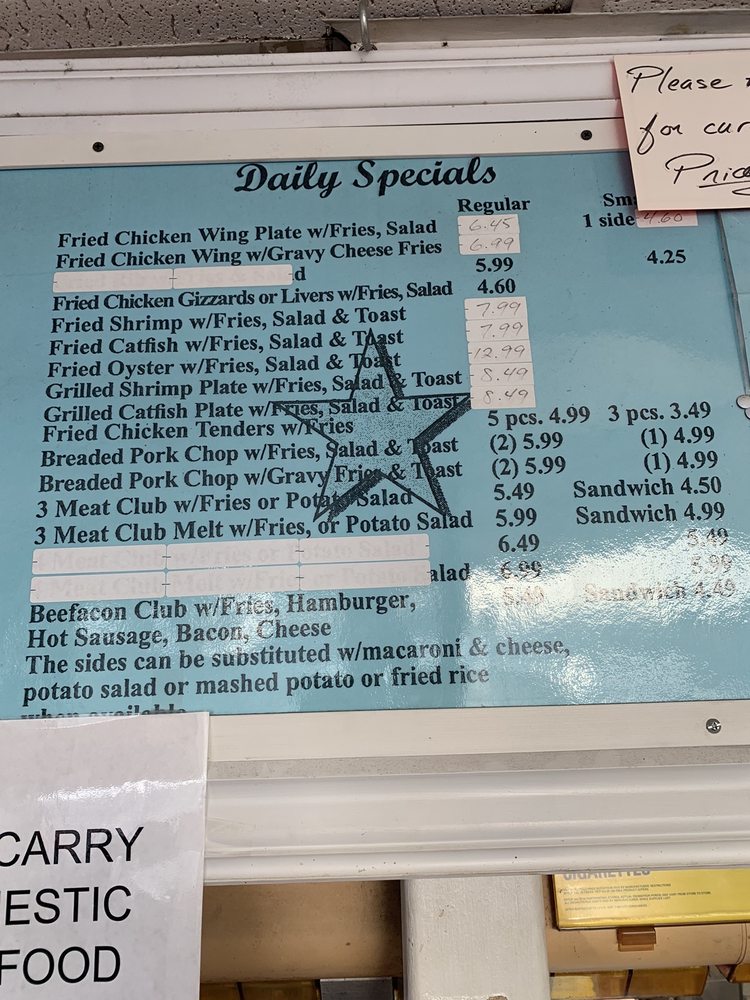 Please
for cur
Pric
Daily Specials
Regular
Sm
Fried Chicken Wing Plate w/Fries, Salad 6.45 1 side 4.60
Fried Chicken Wing w/Gravy Cheese Fries 6.99
d 5.99 4.25
Fried Chicken Gizzards or Livers w/Fries, Salad 4.60
Fried Shrimp w/Fries, Salad & Toast 7.99
Fried Catfish w/Fries, Salad & Toast 7.99
Fried Oyster w/Fries, Salad & Toast 12.99
Grilled Shrimp Plate w/Fries, Salad & Toast 8.49
Grilled Catfish Plate w/Fries, Salad & Toast 8.49
Fried Chicken Tenders w/Fries 5 pcs. 4.99 3 pcs. 3.49
Breaded Pork Chop w/Fries, Salad & Toast (2) 5.99 (1) 4.99
Breaded Pork Chop w/Gravy Fries & Toast (2) 5.99 (1) 4.99
3 Meat Club w/Fries or Potato Salad 5.49 Sandwich 4.50
3 Meat Club Melt w/Fries, or Potato Salad 5.99 Sandwich 4.99
6.49 5.49
alad 6.99 5.99
Beefacon Club w/Fries, Hamburger, 5.49 Sandwich 4.49
Hot Sausage, Bacon, Cheese
The sides can be substituted w/macaroni & cheese,
potato salad or mashed potato or fried rice
when available
CARRY
ESTIC
FOOD
CIGARETTES